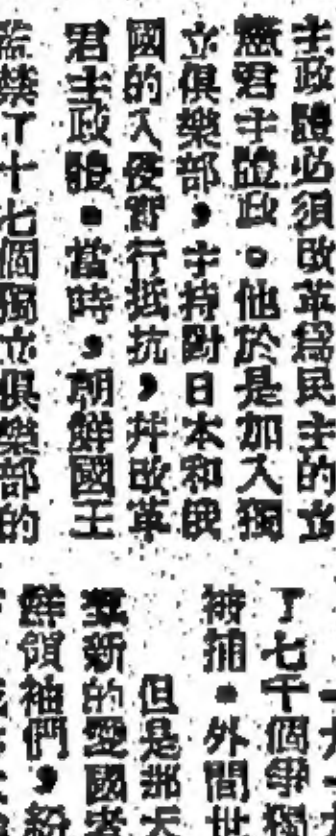 主政體必須改革爲民主的立
憲君主體政。他於是加入獨
立俱樂部，主持對日本和俄
國的入侵實行抵抗，幷改革
君主政體。當時，朝鮮國王
監禁了十七個獨立俱樂部的
了七千個爭獨
被捕。外間世
但是那天
新的愛國者
鮮領袖們，紛